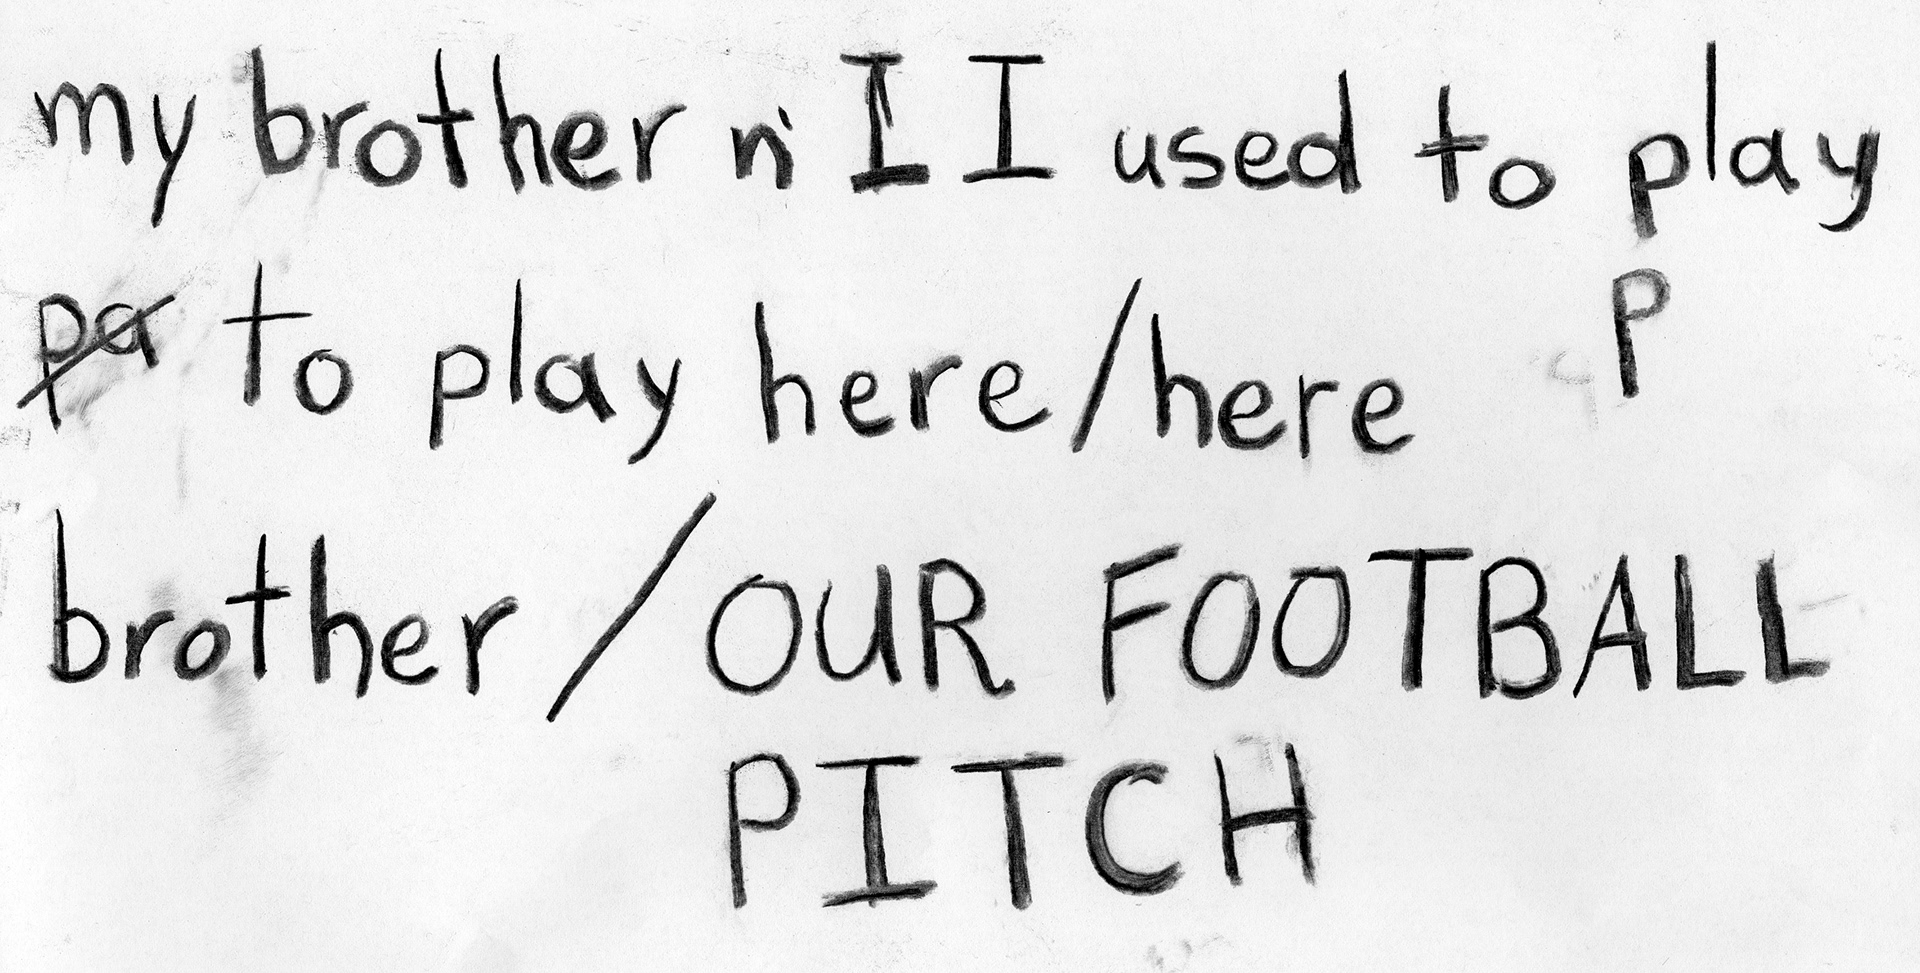 my brother n' I I used to play
pa to play here/here P
brother/OUR FOOTBALL
PITCH